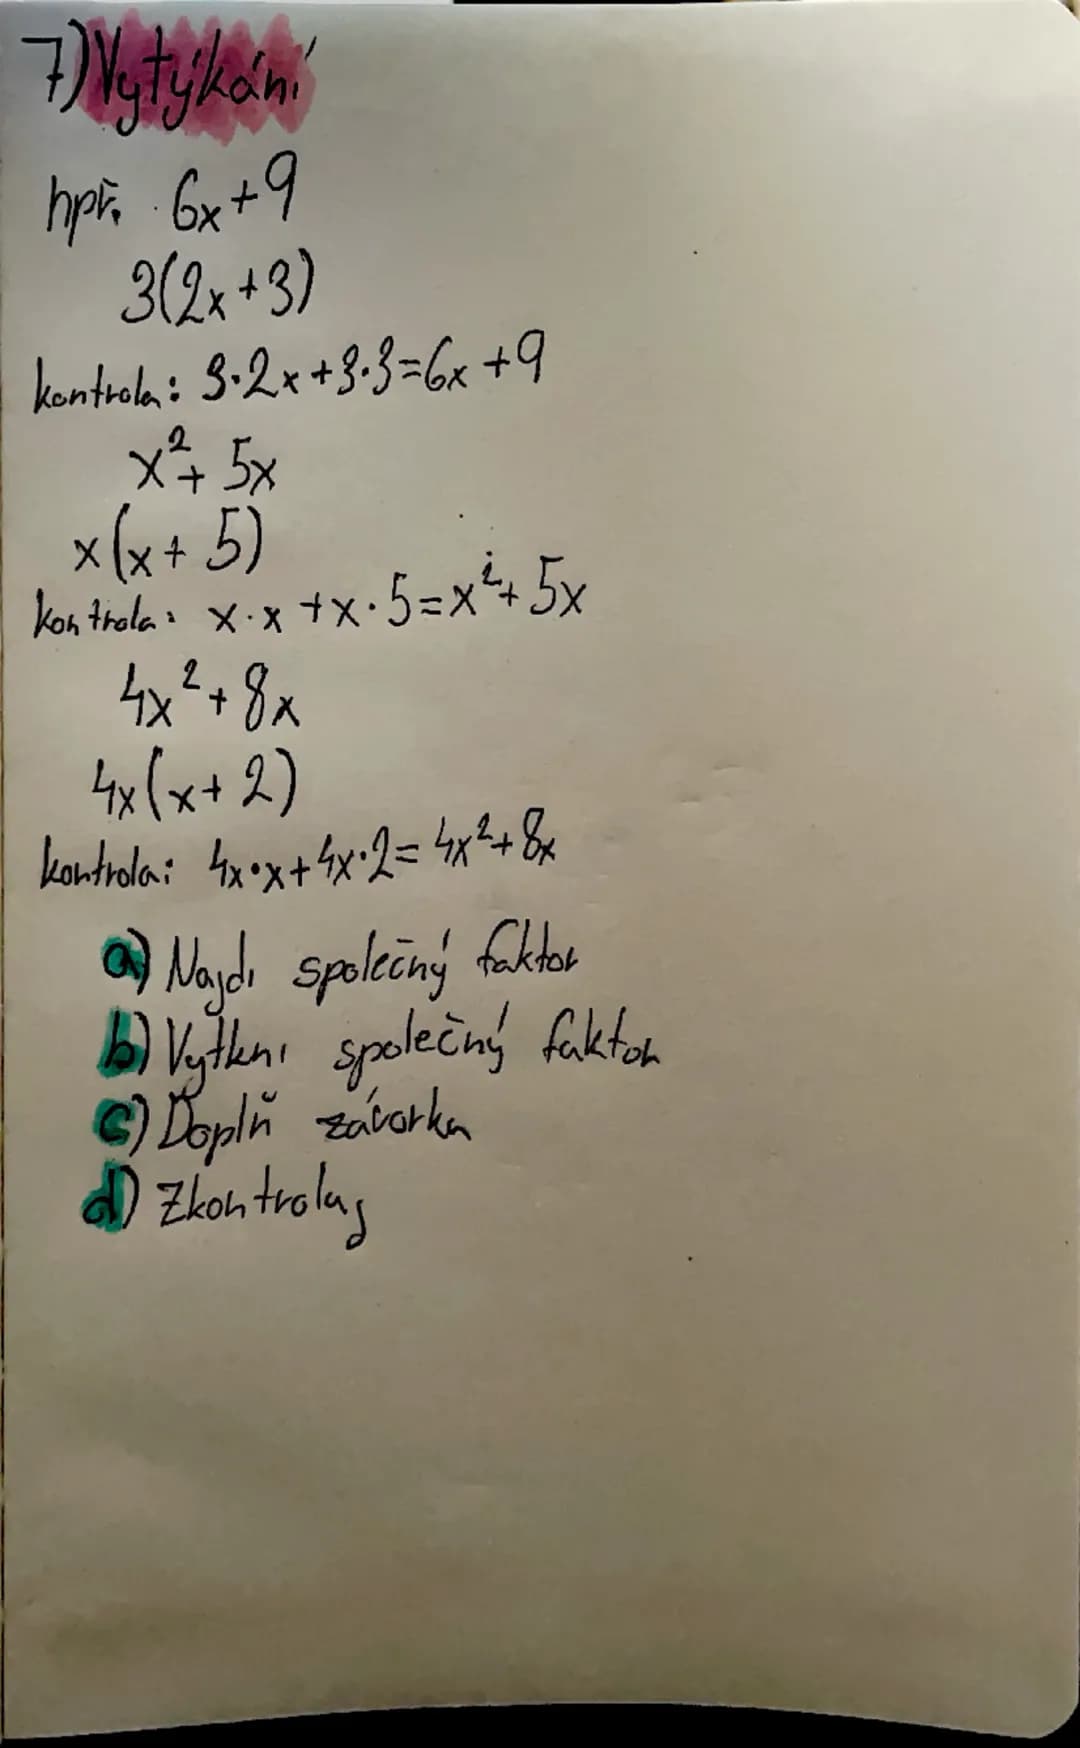 7) Vytýkání
npř. 6x+9
3(2x+3)
kontrola: 3·2x+3·3=6x+9
x²+5x
x(x+5)
kontrola: x·x+x·5=x²+5x
4x²+8x
4x(x+2)
kontrola: 4x·x+4x·2=4x²+8x
a) Najdi společný faktor
b) Vytkni společný faktor
c) Doplň závorka
d) Zkontroluj